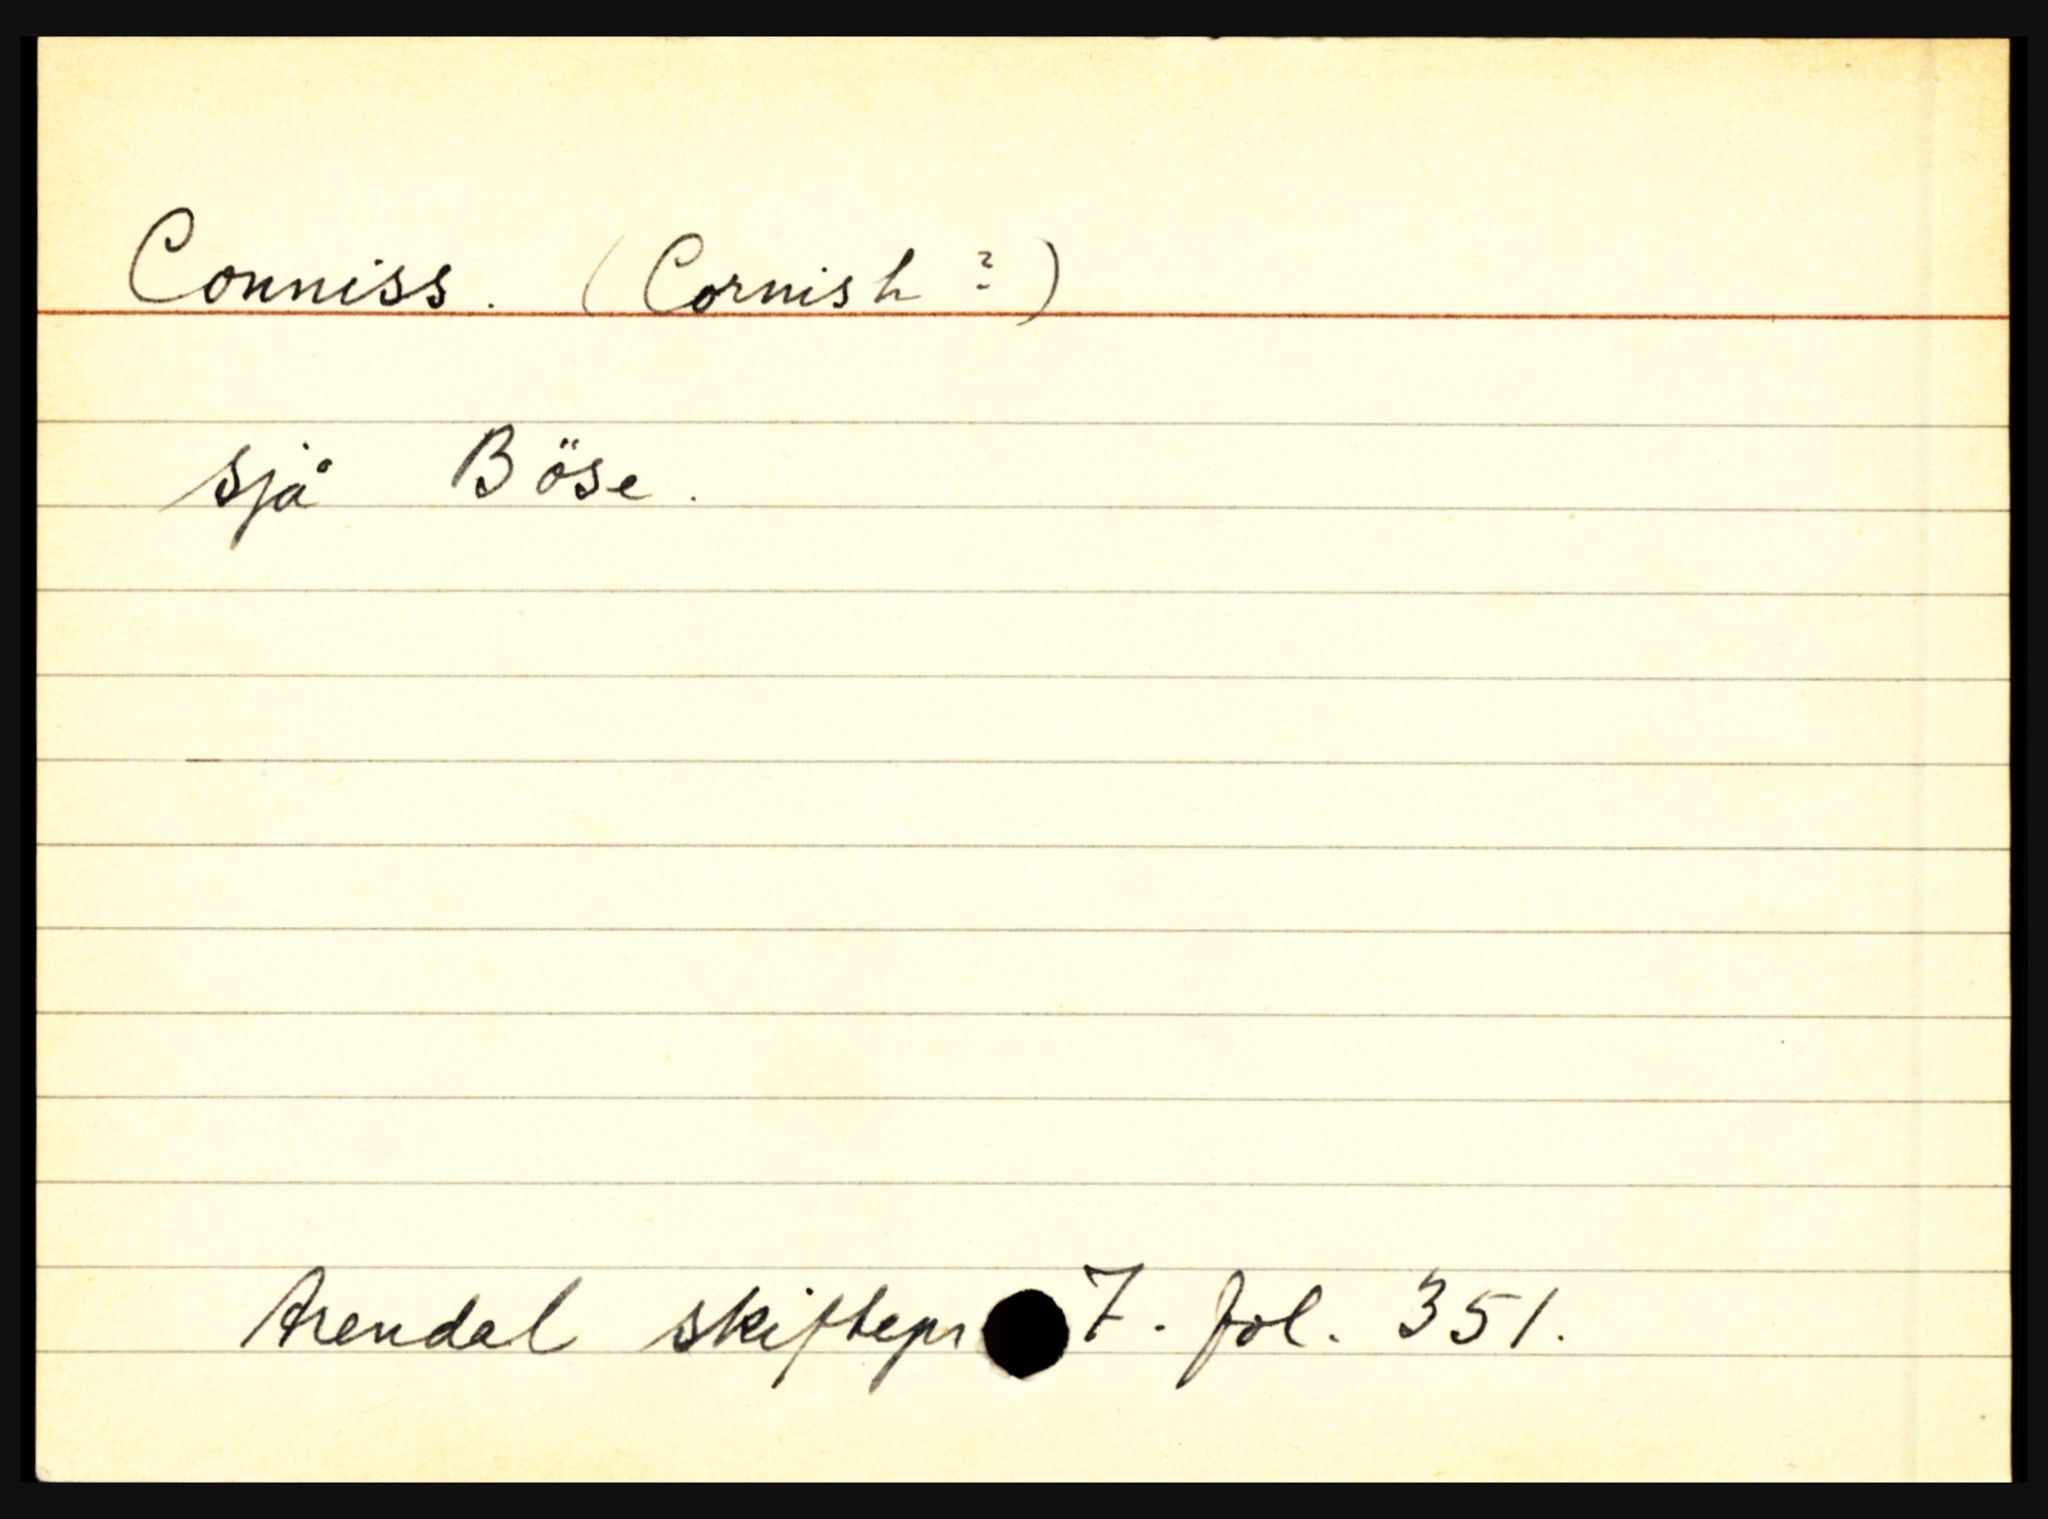 Conniss. (Cornish ?)
sjå Böse.
Arendal skiftepr 7. fol. 351.